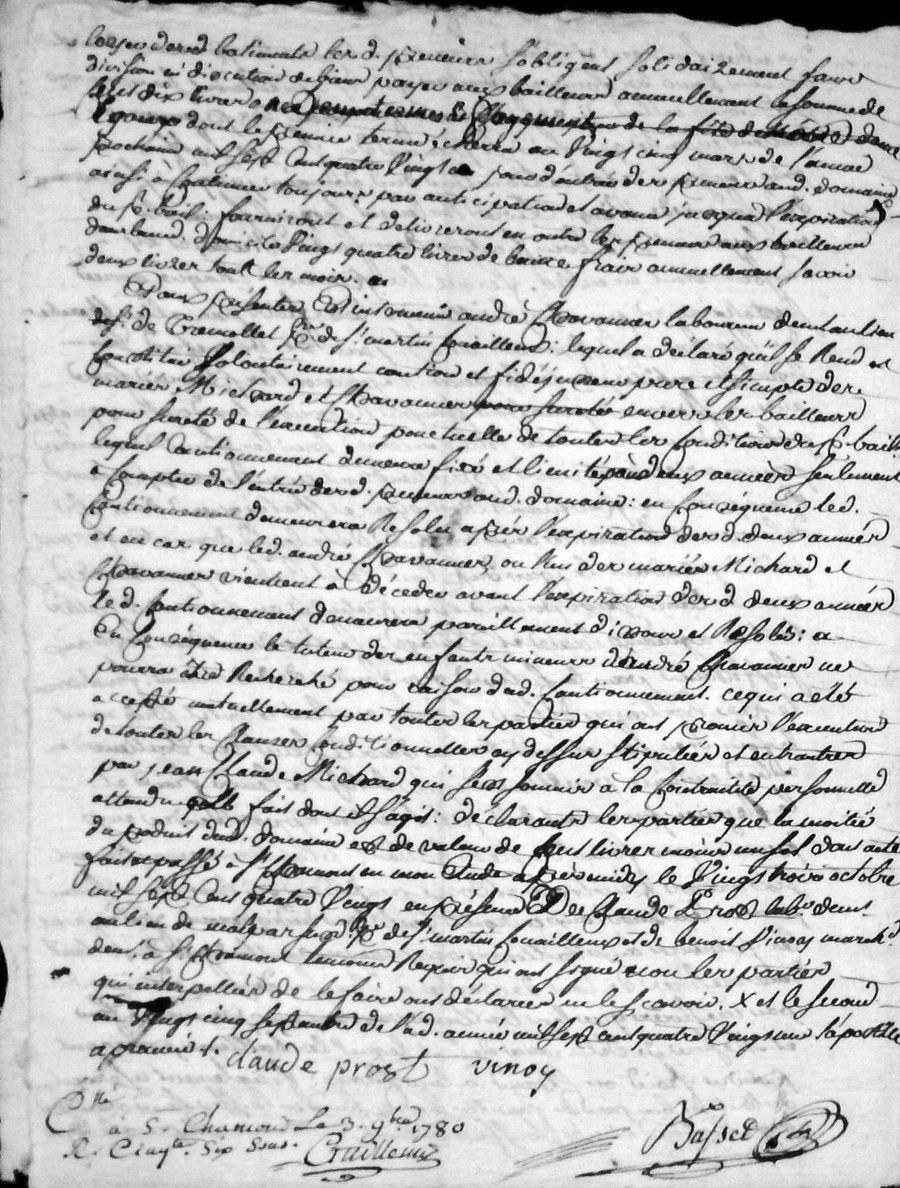 desd. batiments les d. preneurs s'obligent solidairement sans
division ni discution de bien payer aux bailleurs annuellement la somme de
cent dix livres
dont le premier terme écherra au vingt cinq mars de l'année
prochaine mil sept cent quatre vingt un jour d'entrée des preneurs aud. domaine
ainsi à continuer toujours par anticipation et avance jusqu'à l'expiration
du pt. bail: fourniront et délivreront en outre les preneurs aux bailleurs
dans leurd. domicile vingt quatre livres de beurre frais annuellement savoir
deux livres tout les mois.
Aux présentes est intervenu andré Chavannes laboureur demeurant au lieu
de Tremollet psse. de st. martin Couailleux: lequel a déclaré qu'il se rend et
constitue volontairement caution et fidéjusseur pure et simple des
mariés Michard et Chavannes envers les bailleurs
pour sureté de l'éxecution ponctuelle de toutes les conditions du pt. bail
lequel cautionnement demeure fixé et limité pour deux années seulement
à compter de l'entrée desd. preneurs aud. domaine: en conséquence led.
cautionnement demeurera résolu après l'expiration desd. deux années
et en cas que led. andré Chavannes, ou l'un des mariés Michard et
Chavannes vientent à décéder avant l'expiration desd. deux années
led. cautionnement demeurera pareillement dissous et résolu:
En conséquence le tuteur des enfants mineurs d'andré Chavannes ne
pourra être recherché pour raison dud. cautionnement. ce qui a été
accepté mutuellement par toutes les parties qui ont promis l'éxecution
de toutes les clauses conditionnelles cy dessus stipulées et entr'autres
par jean Claude Michard qui s'est soumis à la contrainte personnelle
attendu fait dont il s'agit: déclarants les parties que la moitié
du produit dud. domaine est de valeur de cent livres moins un sol dont acte
fait et passé à st. Chamond en mon étude après midy le vingt trois octobre
mil sept cent quatre vingt en présence De Claude Prost labr. demt.
au lieu de malpas susd. psse. de st. martin Couailleux et de benoit vinoy marchd.
demt. à st. Chamond témoins requis qui ont signé non les parties
qui interpellées de le faire ont déclarées ne le sçavoir. X et le second
au vingt cinq septembre de lad. année mil sept cent quatre vingt un l'apostille
approuvée
claude prost vinoy
Cllé
à S. Chamond Le 3. 9bre 1780
R. Cinqte. Six Sous.
Basset